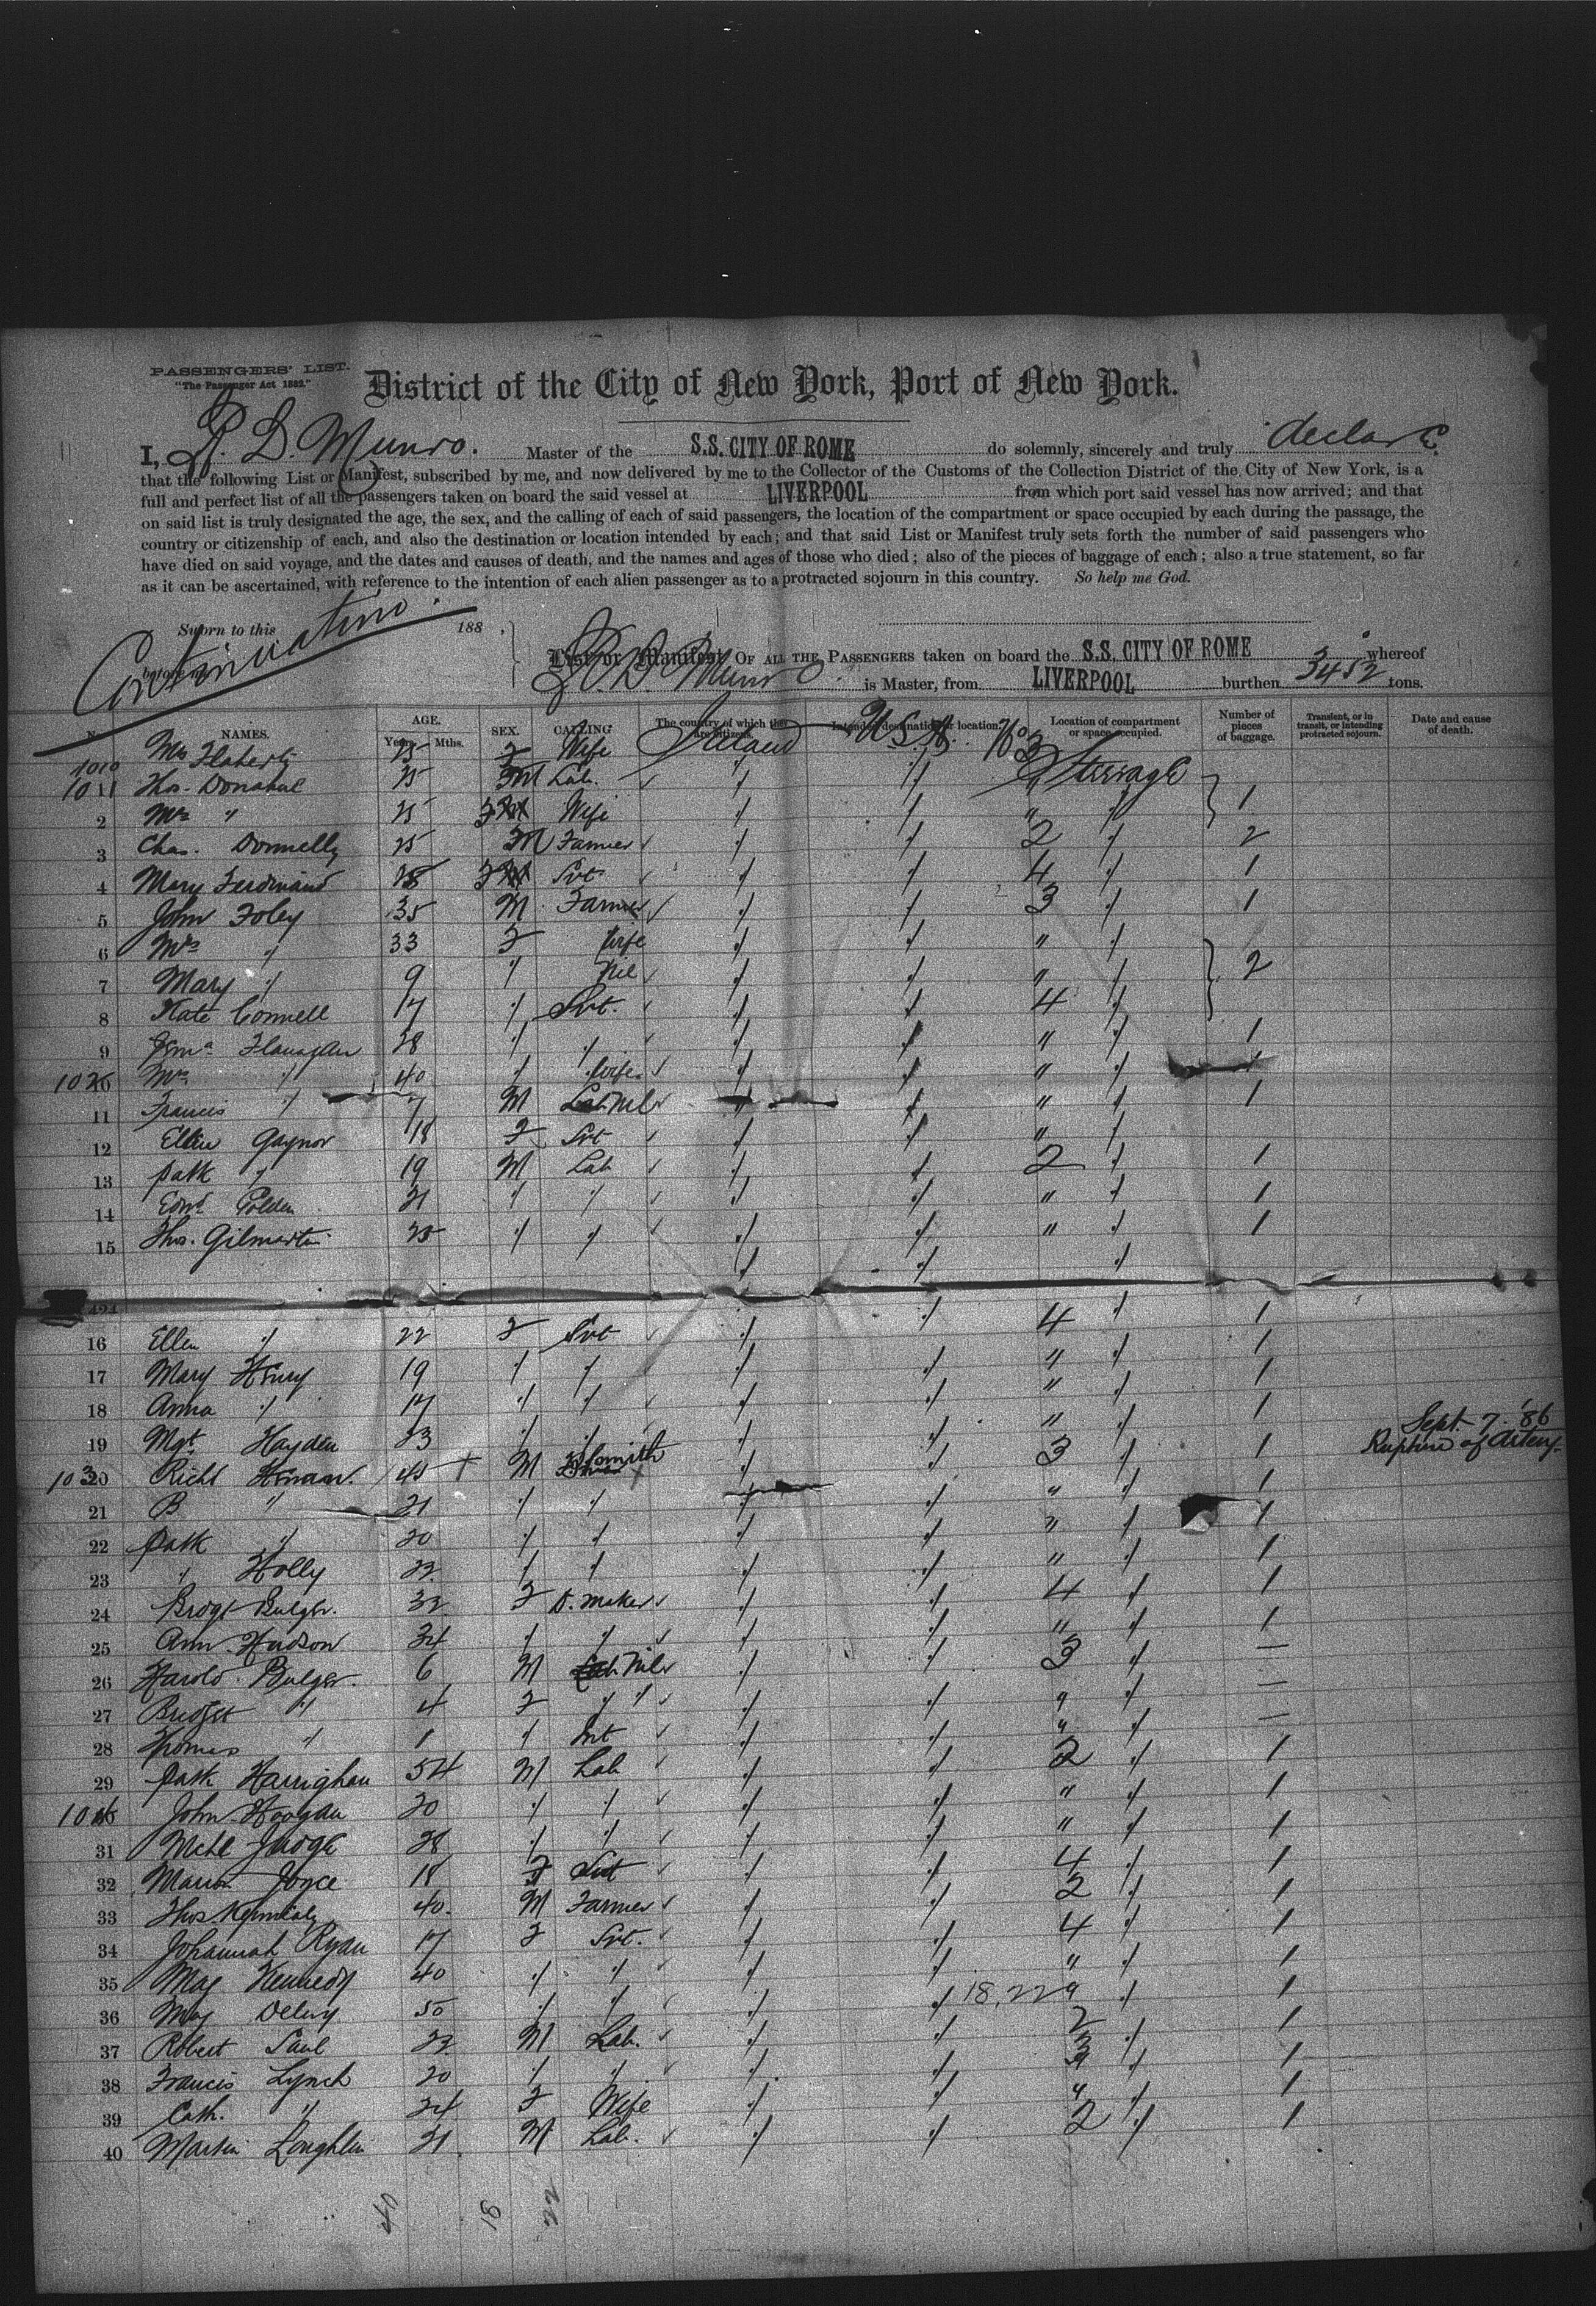 PASSENGERS' LIST.
"The Passenger Act 1882."
District of the City of New York, Port of New York.
I, R. D. Munro. Master of the S.S. CITY OF ROME do solemnly, sincerely and truly declare
that the following List or Manifest, subscribed by me, and now delivered by me to the Collector of the Customs of the Collection District of the City of New York, is a
full and perfect list of all the passengers taken on board the said vessel at LIVERPOOL from which port said vessel has now arrived; and that
on said list is truly designated the age, the sex, and the calling of each of said passengers, the location of the compartment or space occupied by each during the passage, the
country or citizenship of each, and also the destination or location intended by each; and that said List or Manifest truly sets forth the number of said passengers who
have died on said voyage, and the dates and causes of death, and the names and ages of those who died; also of the pieces of baggage of each; also a true statement, so far
as it can be ascertained, with reference to the intention of each alien passenger as to a protracted sojourn in this country. So help me God.
Sworn to this 188
Continuation.
List or Manifest OF ALL THE PASSENGERS taken on board the S.S. CITY OF ROME whereof
R. D. Munro is Master, from LIVERPOOL burthen 3452 tons.
NAMES. AGE. Years. Mths. SEX. CALLING The country of which they are citizens. Intended destination or location. Location of compartment or space occupied. Number of pieces of baggage. Transient, or in transit, or intending protracted sojourn. Date and cause of death.
1010 Mrs Flaherty 25 F Wife Ireland U.S.A. No 3 Steerage
1011 Thos. Donahue 25 M Lab. " " " "
2 Mrs " 25 F Wife " " " " 1
3 Chas. Donnelly 25 M Farmer " " 2 " 2
4 Mary Ferdinand F Svt " " 4 " 1
5 John Foley 35 M Farmer " " 3 " 1
6 Mrs " 33 F Wife " " " "
7 Mary " 9 " Nil " " " " 2
8 Kate Connell 17 " Svt. " " 4 "
9 Flanagan 28 " " " " " " 1
10 Mrs " 40 " Wife. " " " "
11 Francis " 7 M Nil " " " " 1
12 Ellen Gaynor 18 F Svt " " " "
13 Patk " 19 M Lab " " 2 " 1
14 Edwd Golden 21 " " " " " " 1
15 Thos. Gilmartin 25 " " " " " " 1
16 Ellen " 22 F Svt " " 4 " 1
17 Mary Henry 19 " " " " " " 1
18 Anna " 17 " " " " " " 1
19 Mgt Hayden 23 " " " " " " 1
Sept. 7. '86
1030 Richd 45 M Blsmith " " 3 " 1 Rupture of Artery
21 B " 21 " " " " " " 1
22 Patk " 20 " " " " " " 1
23 " Holly 22 " " " " " " 1
24 Brogt Bulger. 32 F D. Maker " " 4 " 1
25 Ann Hudson 34 " " " " " " 1
26 Harold Bulger. 6 M Nil " " 3 " —
27 Bridget " 4 F " " " " " —
28 Thomas " 1 " Inf " " " " —
29 Patk Harrighan 54 M Lab " " 2 " 1
John Hoogan 20 " " " " " " 1
31 Mchl Judge 28 " " " " " " 1
32 Joyce 18 F Svt " " 4 " 1
33 Thos 40 M Farmer " " 2 " 1
34 Johannah Ryan 17 F Svt. " " 4 " 1
35 Mag Kennedy 40 " " " " " " 1
36 May 50 " " " " 18,229 " 1
37 Robert Saul 22 M Lab. " " 2 " 1
38 Francis Lynch 20 " " " " 3 " 1
39 Cath. " 24 F Wife " " " " 1
40 Martin Loughlin 21 M Lab. " " 2 " 1